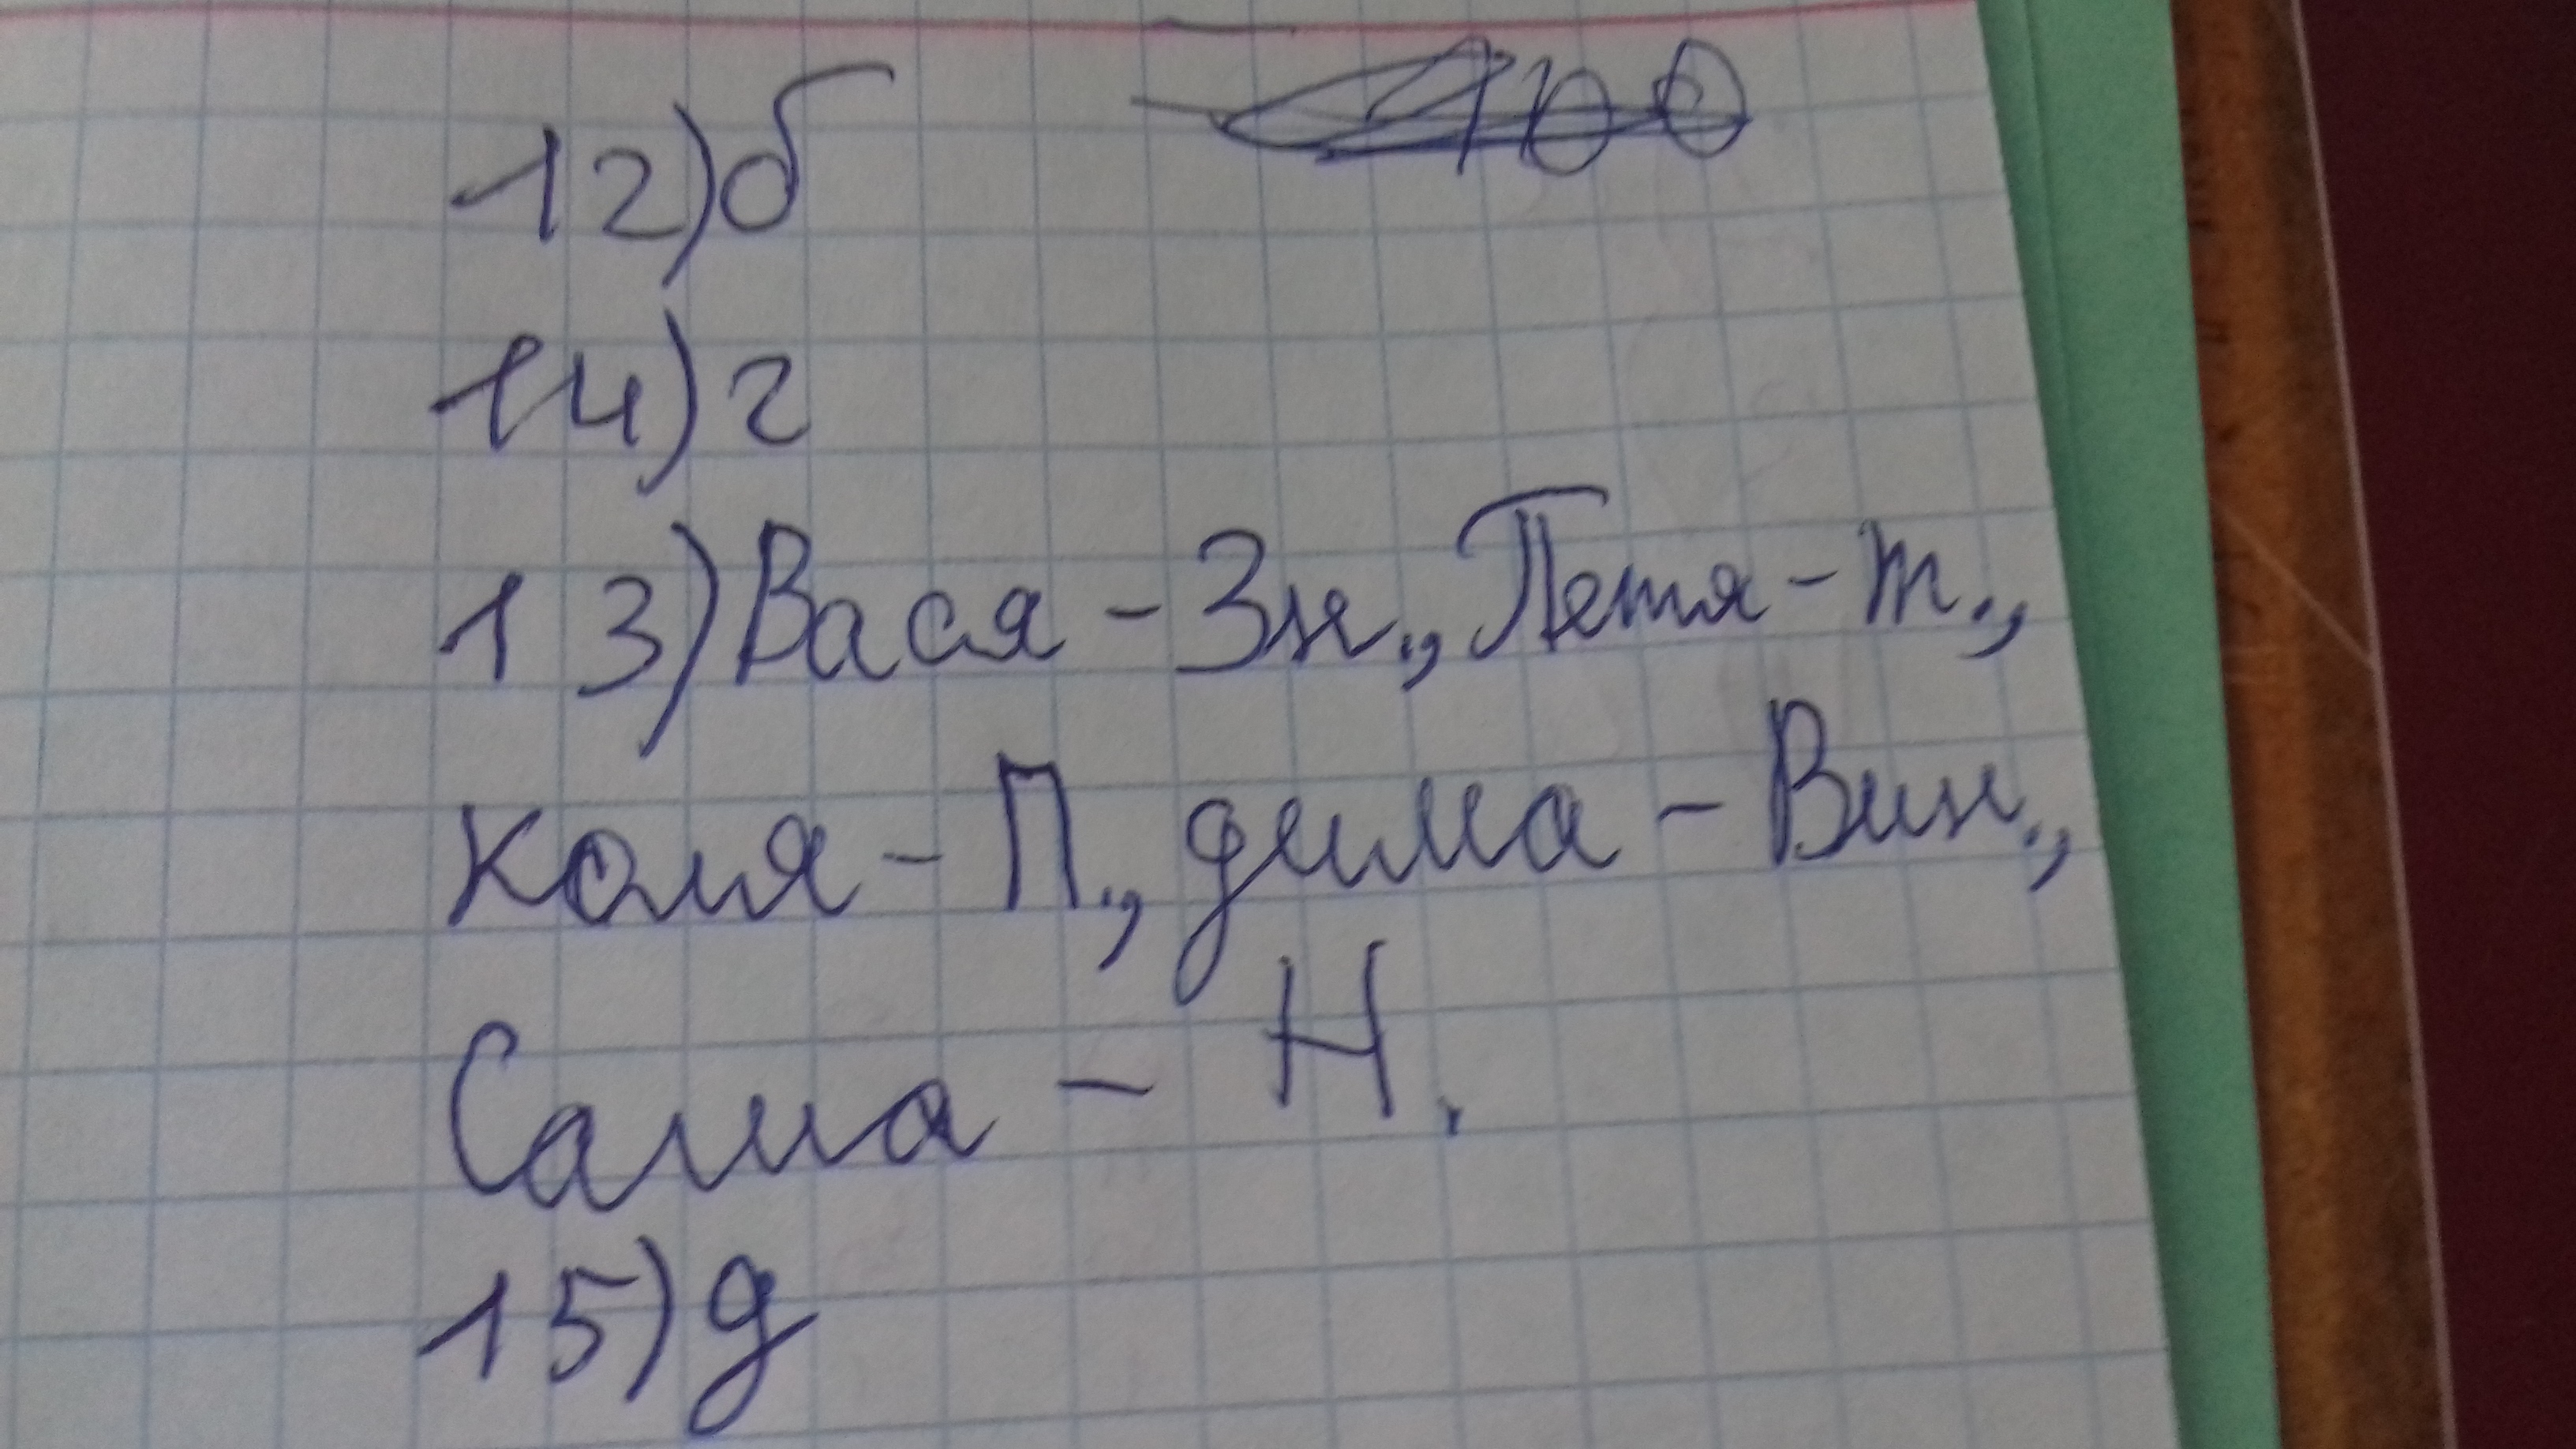 12) б
14) г
13) Вася - Зн., Петя - т.,
коля - П., дима - Вин.,
Саша - Н.
15) д